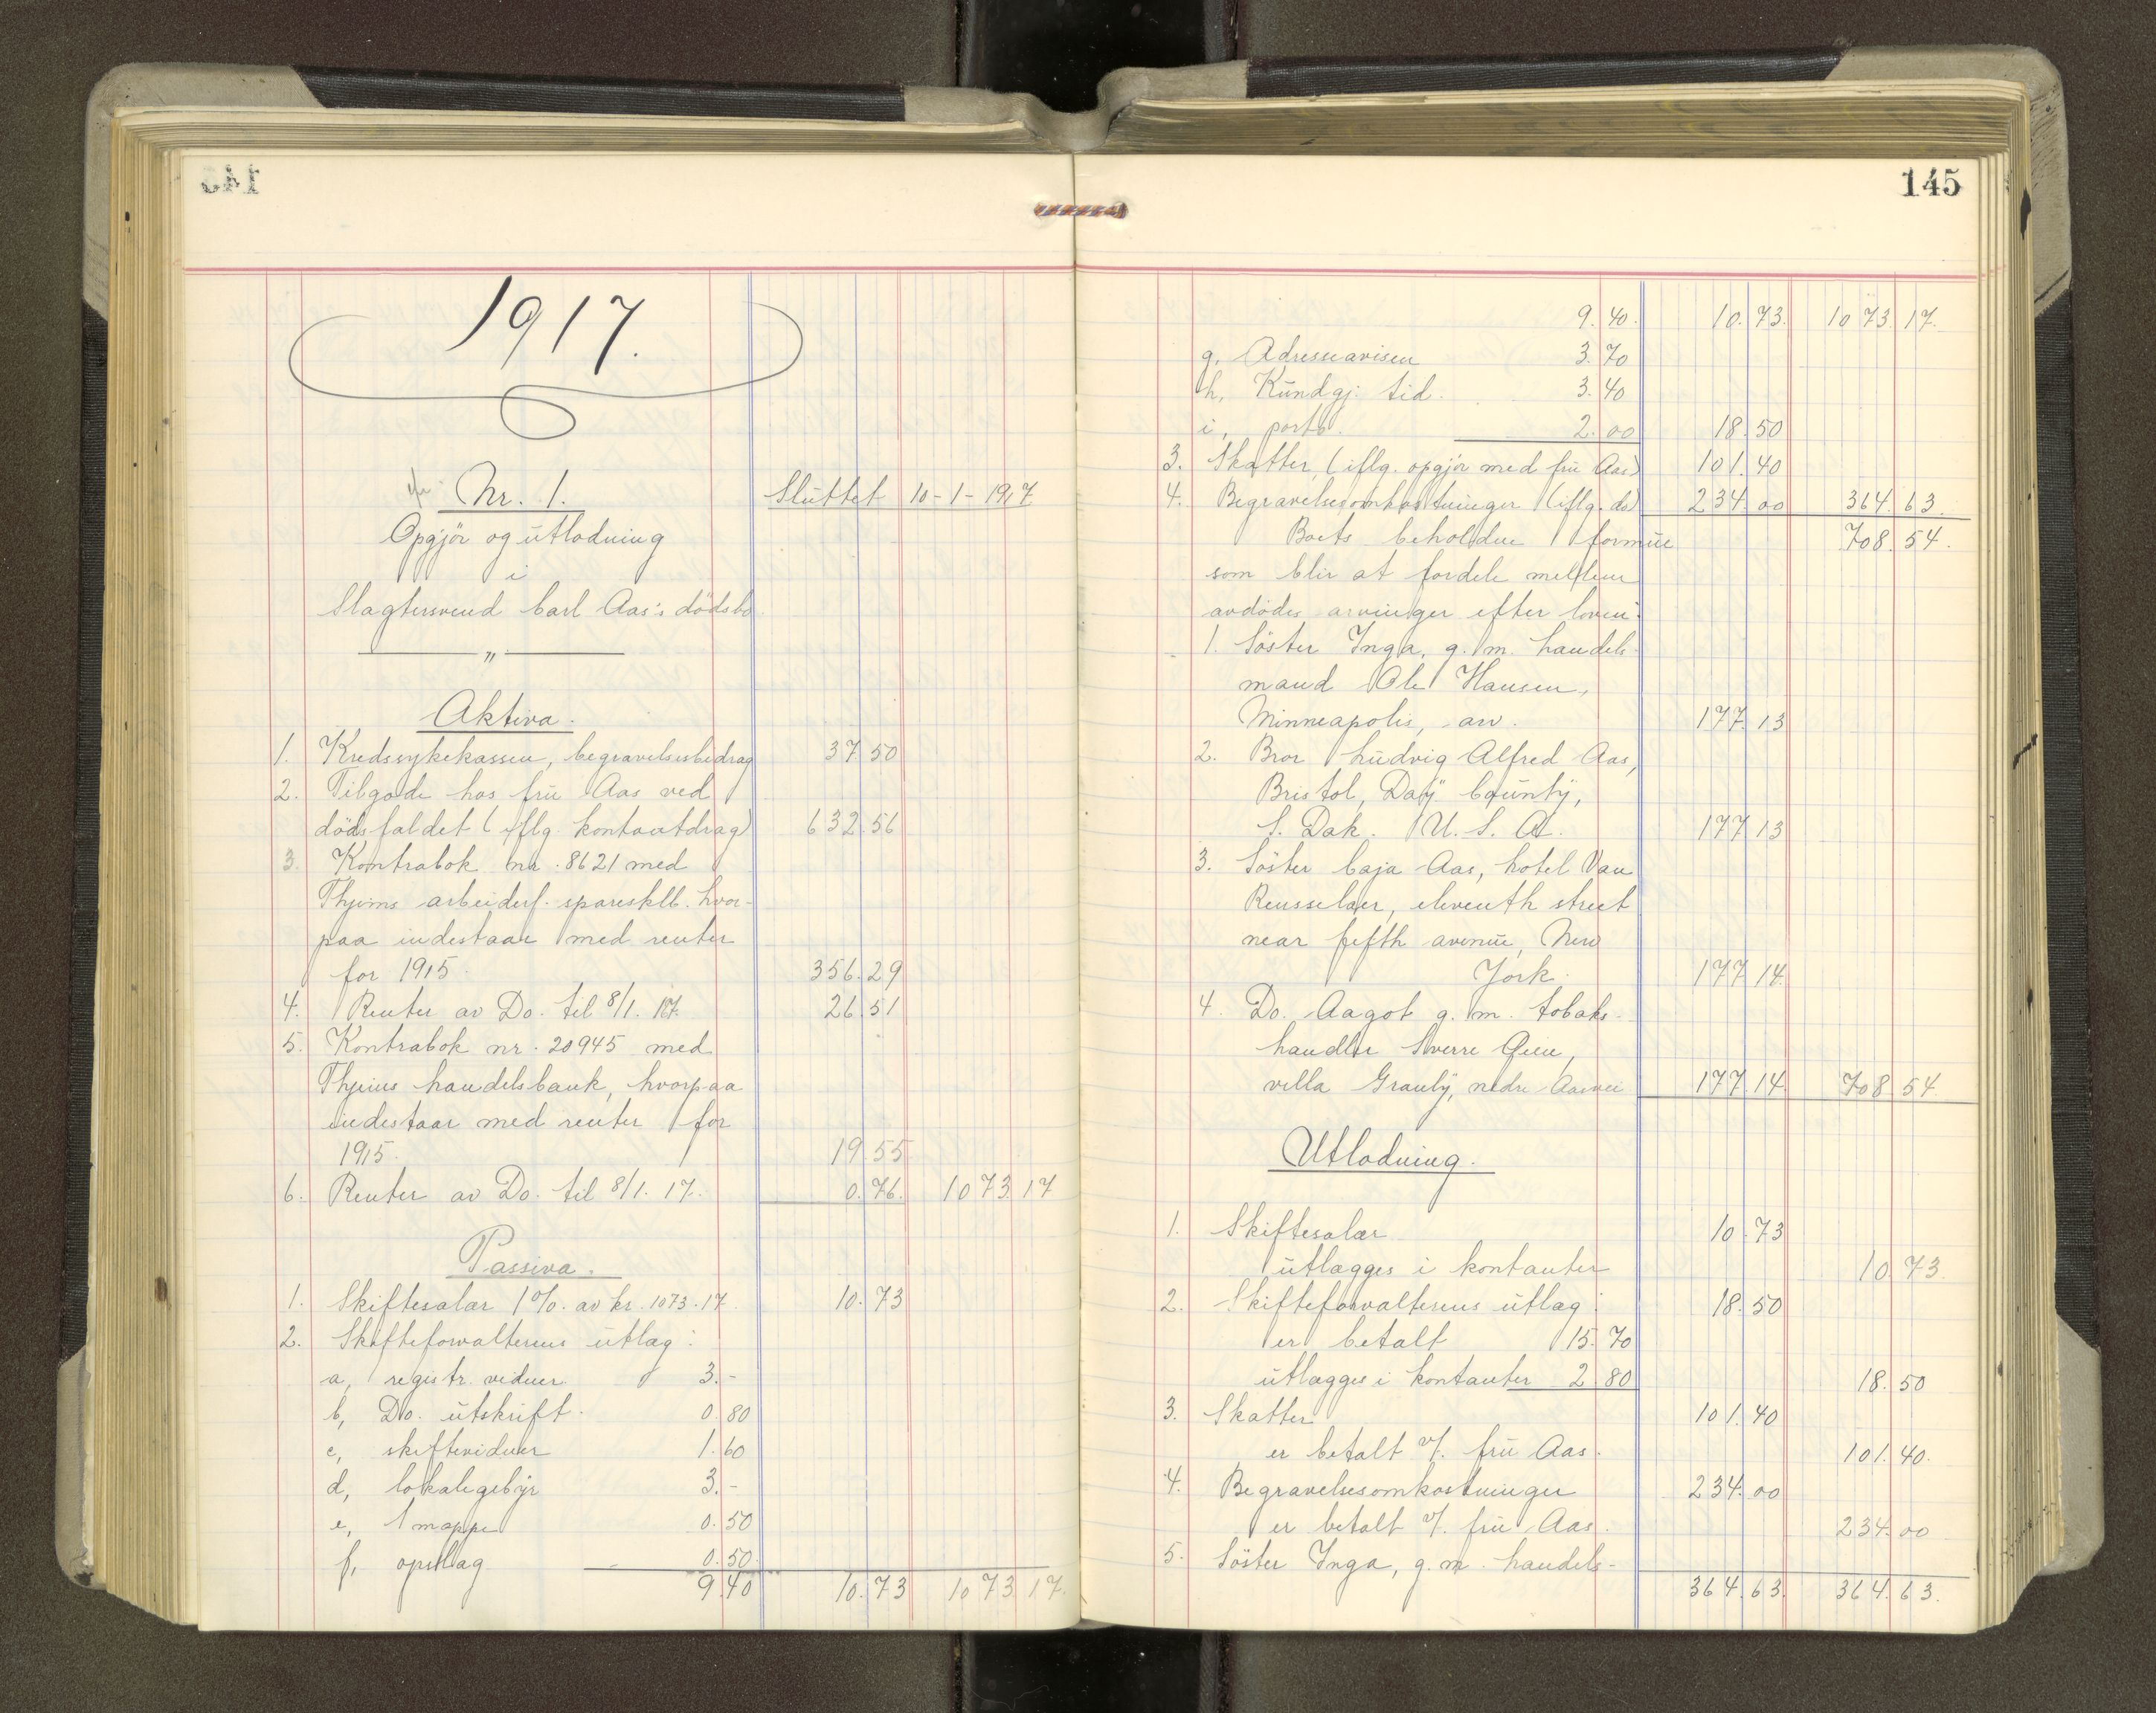 1917.
Nr. 1. Sluttet 10-1-1917
Opgjör og utlodning
i
Slagtersvend Carl Aas's dödsbo
— " —
Aktiva.
1. Kredssykekassen, begravelsesbidrag 37 50
2. Tilgode hos fru Aas ved
dödsfaldet (iflg. kontantdrag) 632.56
3. Kontrabok nr. 8621 med
Thjems arbeiderf. sparesklb. hvor-
paa indestaar med renter
for 1915. 356.29
4. Renter av Do. til 8/1. 17. 26.51
5. Kontrabok nr. 20945 med
Thjems handelsbank, hvorpaa
indestaar med renter for
1915. 19 55
6. Renter av Do. til 8/1. 17. 0.76. 1073 17
Passiva.
1. Skiftesalær 1%. av kr. 1073.17 10.73
2. Skifteforvalterens utlæg:
a, registr. vidner. 3.-
b, Do. utskrift. 0.80
c, skiftevidner 1.60
d, lokalegebyr 3.-
e, 1 mappe 0.50
f, opslag 0.50.
9.40 10.73 1073 17.
145
9.40. 10.73. 1073 17.
g. Adresseavisen 3.70
h, Kundgj. tid. 3.40
i, porto. 2.00 18.50
3. Skatter, (iflg. opgjör med fru Aas) 101.40
4. Begravelsesomkostninger (iflg. do) 234.00 364.63.
Boets beholdne formue 708.54.
som blir at fordele mellem
avdödes arvinger efter loven:
1. Söster Inga, g. m. handels-
mand Ole Hansen,
Minneapolis, arv. 177.13
2. Bror Ludvig Alfred Aas,
Bristol, Day County,
S. Dak. U. S. A. 177 13
3. Söster Caja Aas, hotel Van
Rensselaer, eleventh street
near fifth avenue, New
York. 177 14.
4. Do. Aagot g. m. tobaks-
handler Sverre Gien,
villa Granly, nedre Aasvei 177.14 708 54
Utlodning.
1. Skiftesalær 10.73
utlægges i kontanter 10 73.
2. Skifteforvalterens utlæg: 18.50
er betalt 15.70
utlægges i kontanter 2 80 18.50
3. Skatter 101.40
er betalt v/. fru Aas. 101.40.
4. Begravelsesomkostninger 234.00
er betalt v/. fru Aas. 234.00
5. Söster Inga, g. m. handels-
364.63. 364.63.